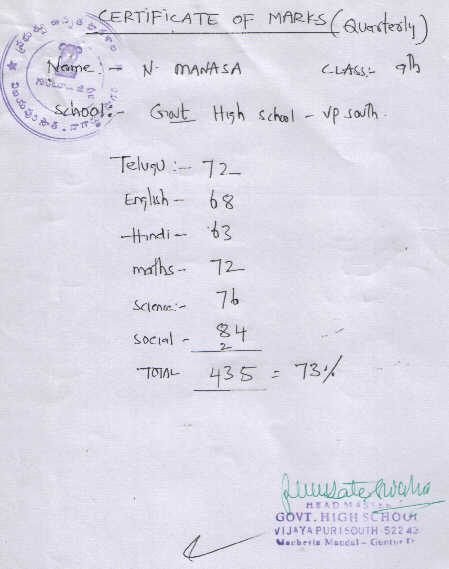 CERTIFICATE OF MARKS (Quarterly)
Name :- N. MANASA CLASS:- 9th
School:- Govt High school - VP South.
Telugu :- 72
English - 68
Hindi - 63
maths - 72
Science:- 76
social - 84
2
TOTAL 435 = 73%
HEADMASTER
GOVT. HIGH SCHOOL
VIJAYAPURI SOUTH-522 43
Macherla Mandal - Guntur D